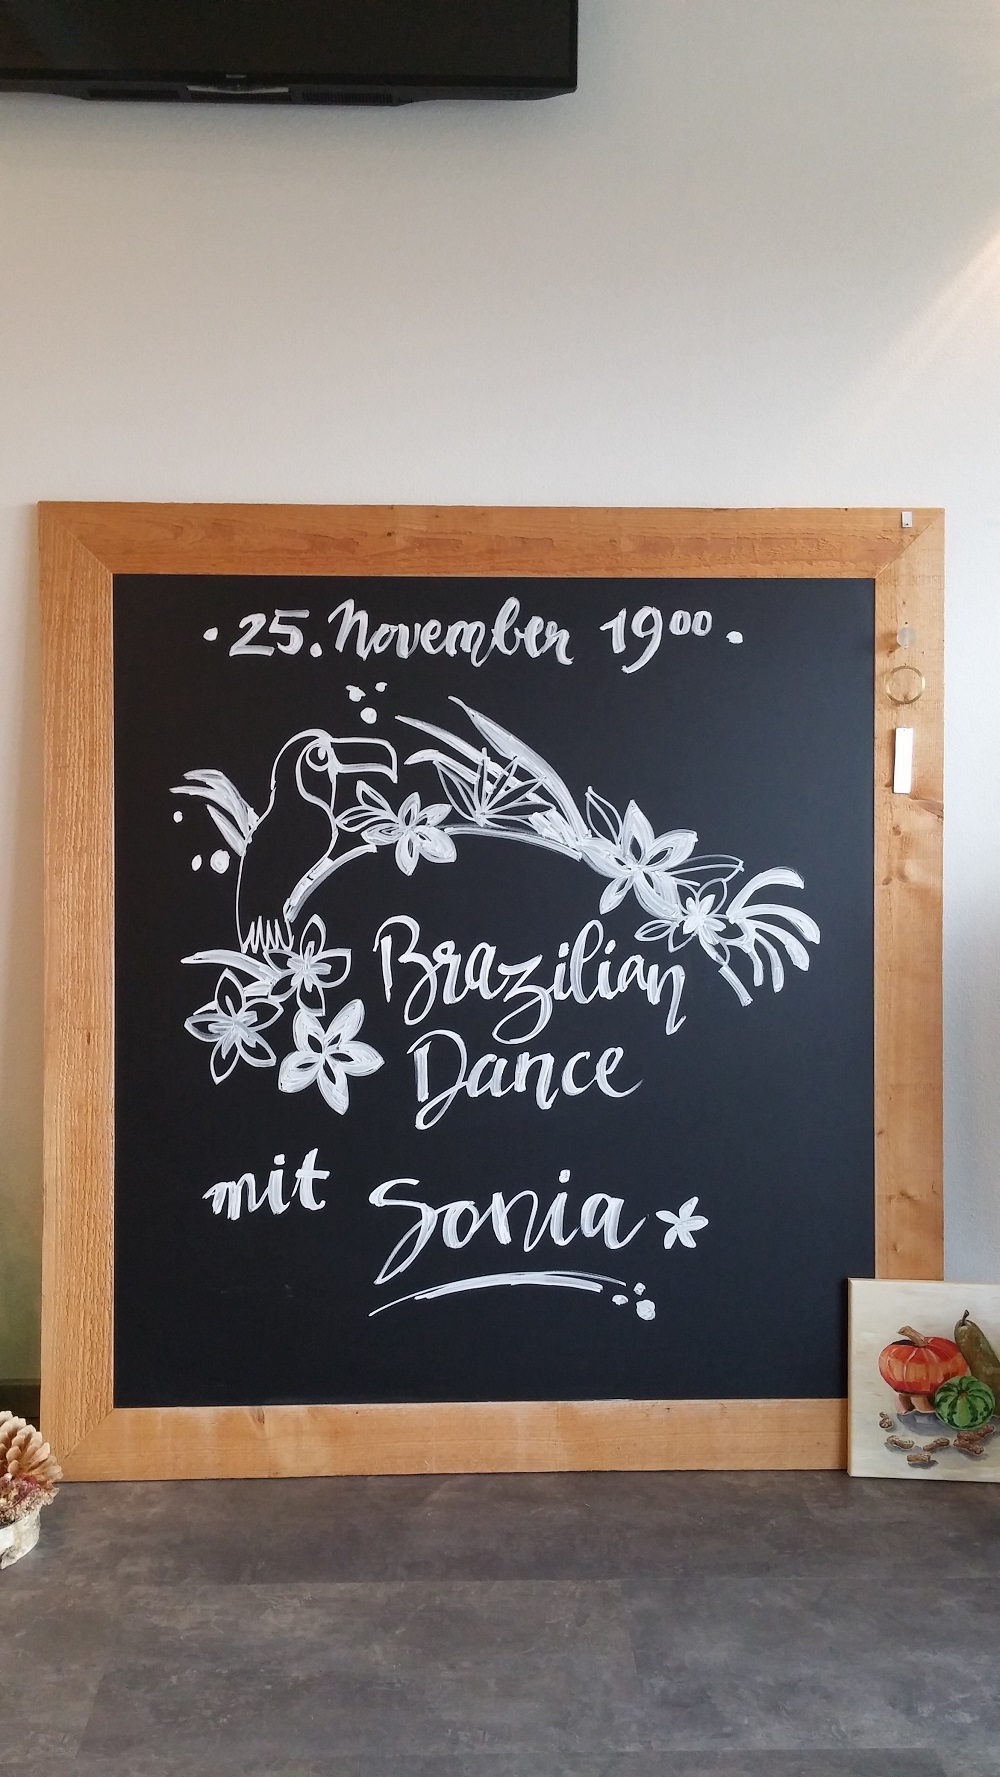 25. November 19⁰⁰
Brazilian
Dance
mit Sonia